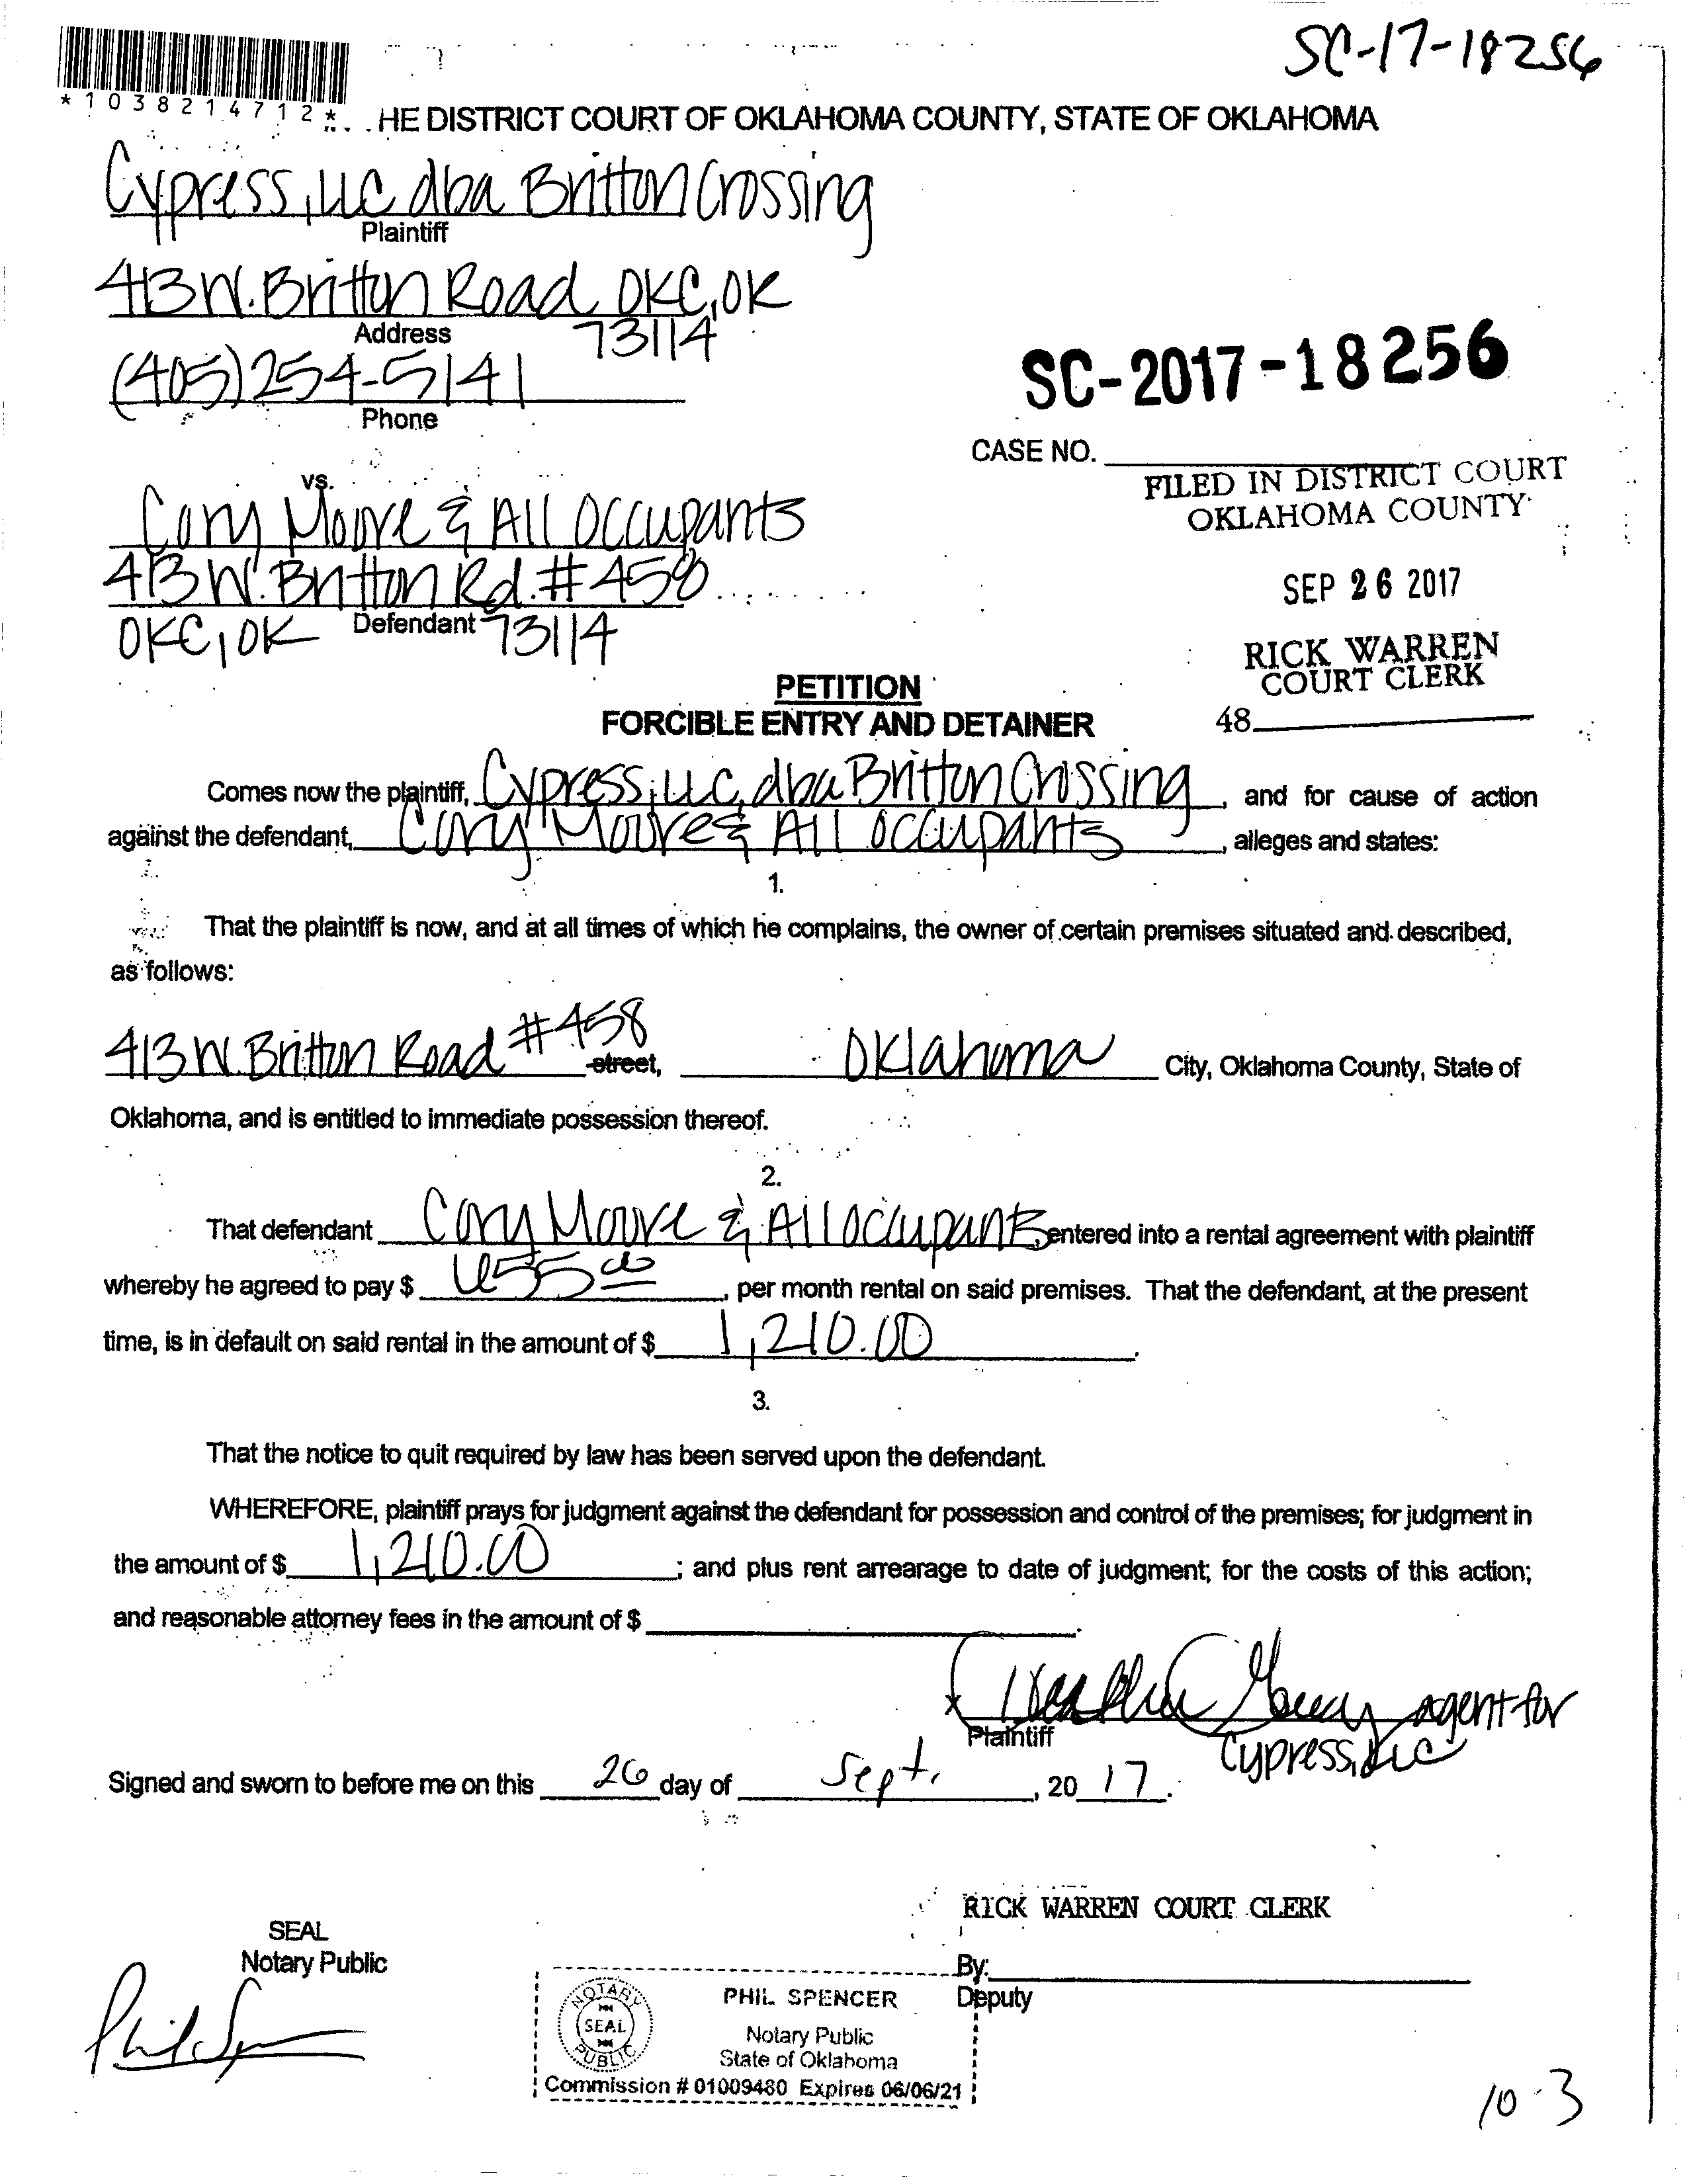 SC-17-18256
*1038214712*
HE DISTRICT COURT OF OKLAHOMA COUNTY, STATE OF OKLAHOMA
Cypress, LLC dba Britton Crossing
Plaintiff
413 W. Britton Road OKC, OK
Address 73114
(405) 254-5141
Phone
SC-2017-18256
CASE NO.
FILED IN DISTRICT COURT
OKLAHOMA COUNTY
SEP 26 2017
RICK WARREN
COURT CLERK
48
vs.
Cory Moore & All Occupants
413 W. Britton Rd. #458
OKC, OK Defendant 73114
PETITION
FORCIBLE ENTRY AND DETAINER
Comes now the plaintiff, Cypress, LLC, dba Britton Crossing, and for cause of action
against the defendant, Cory Moore & All Occupants, alleges and states:
1.
That the plaintiff is now, and at all times of which he complains, the owner of certain premises situated and described,
as follows:
413 W. Britton Road #458 street, Oklahoma City, Oklahoma County, State of
Oklahoma, and is entitled to immediate possession thereof.
2.
That defendant Cory Moore & All Occupants entered into a rental agreement with plaintiff
whereby he agreed to pay $ 655 00, per month rental on said premises. That the defendant, at the present
time, is in default on said rental in the amount of $ 1,210.00.
3.
That the notice to quit required by law has been served upon the defendant.
WHEREFORE, plaintiff prays for judgment against the defendant for possession and control of the premises; for judgment in
the amount of $ 1,210.00; and plus rent arrearage to date of judgment; for the costs of this action;
and reasonable attorney fees in the amount of $
x agent for
Plaintiff Cypress, LLC
Signed and sworn to before me on this 26 day of Sept., 2017.
RICK WARREN COURT CLERK
SEAL
Notary Public
By:
Deputy
NOTARY
SEAL
PUBLIC
PHIL SPENCER
Notary Public
State of Oklahoma
Commission # 01009480 Expires 06/06/21
10-3